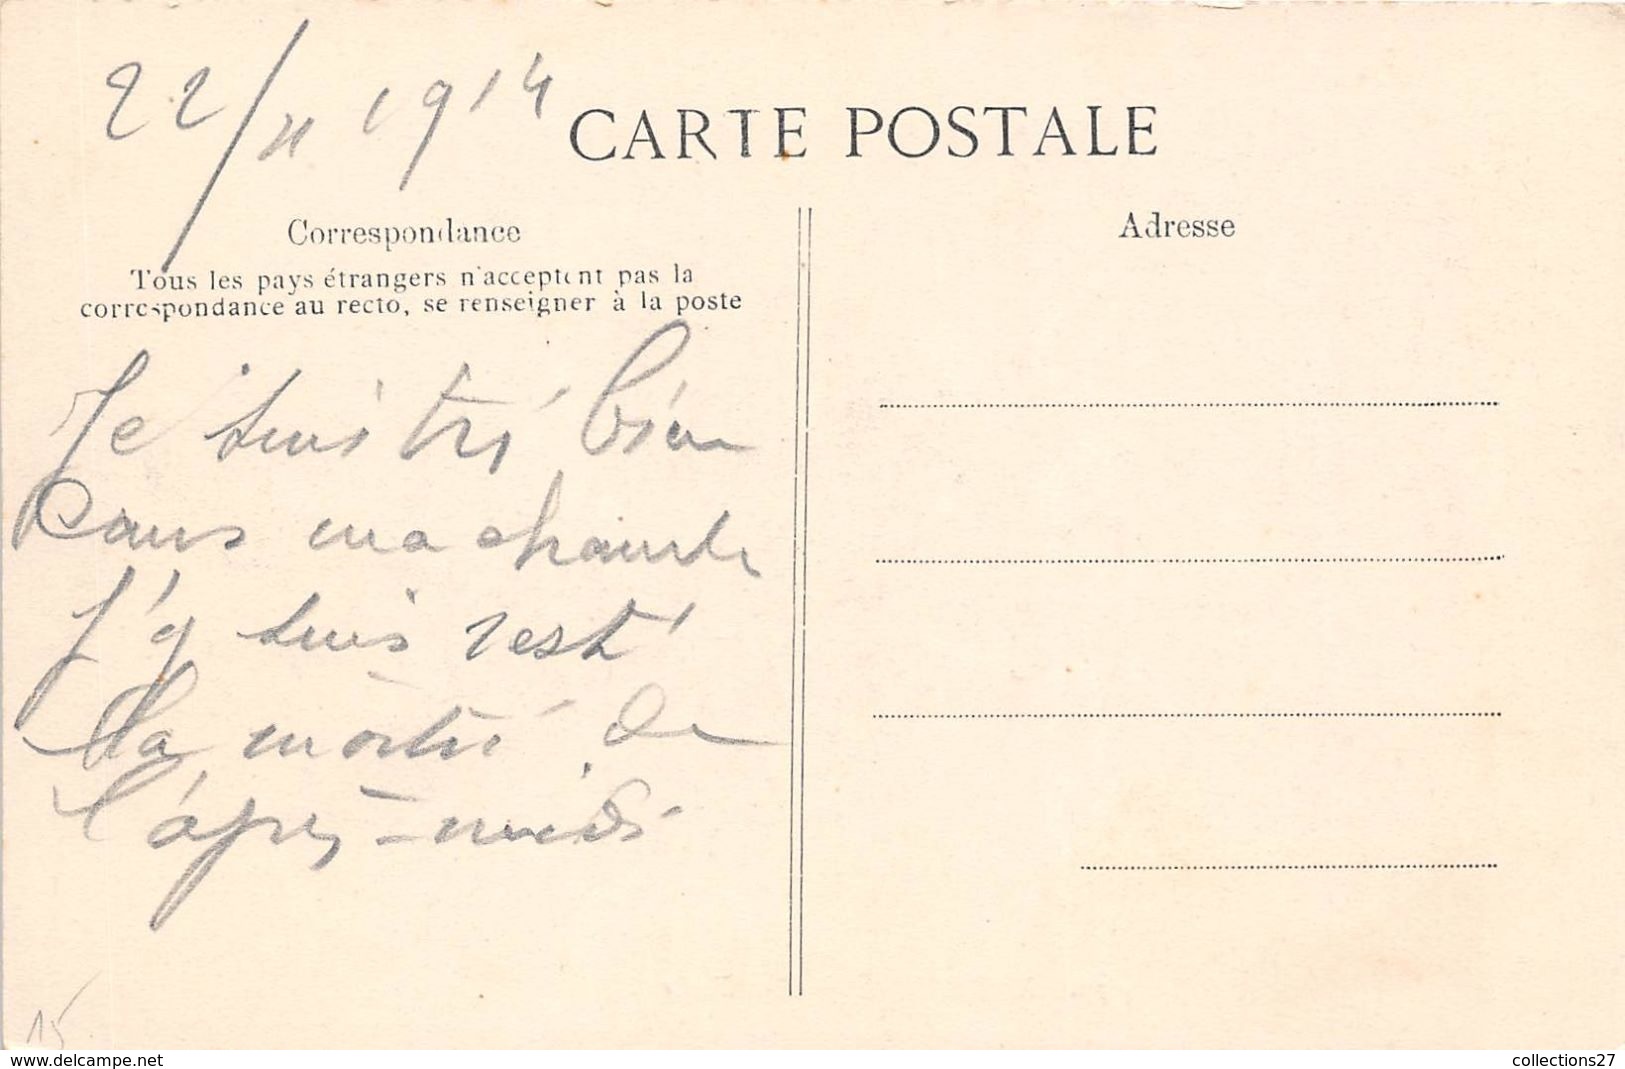 22/11 1914
CARTE POSTALE
Correspondance
Adresse
Tous les pays étrangers n'acceptent pas la
correspondance au recto, se renseigner à la poste
Je suis très bien
dans ma chambre
J'y suis resté
la moitié de
l'après-midi
15
www.delcampe.net
collections27